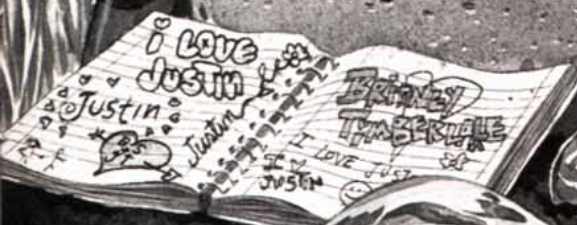 I LOVE
JUSTIN
Justin
Justin
BRITNEY
TYMBERLAKE
I LOVE JUST
I ♥
JUSTIN